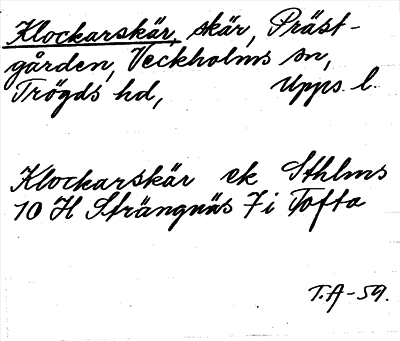 Klockarskär, skär, Präst-
gården, Veckholms sn,
Trögds hd, Upps. l.
Klockarskär ek Sthlms
10 H Strängnäs 7 i Tofta
T.A-59.